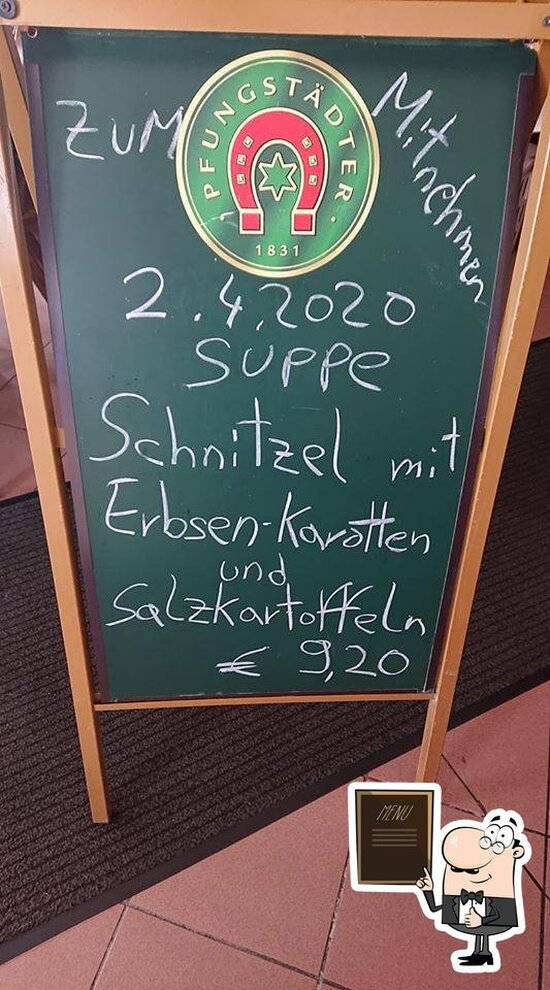 ZUM Mitnehmen
PFUNGSTÄDTER
1831
2.4.2020
SUPPE
Schnitzel mit
Erbsen-Karotten
und
Salzkartoffeln
€ 9,20
MENU